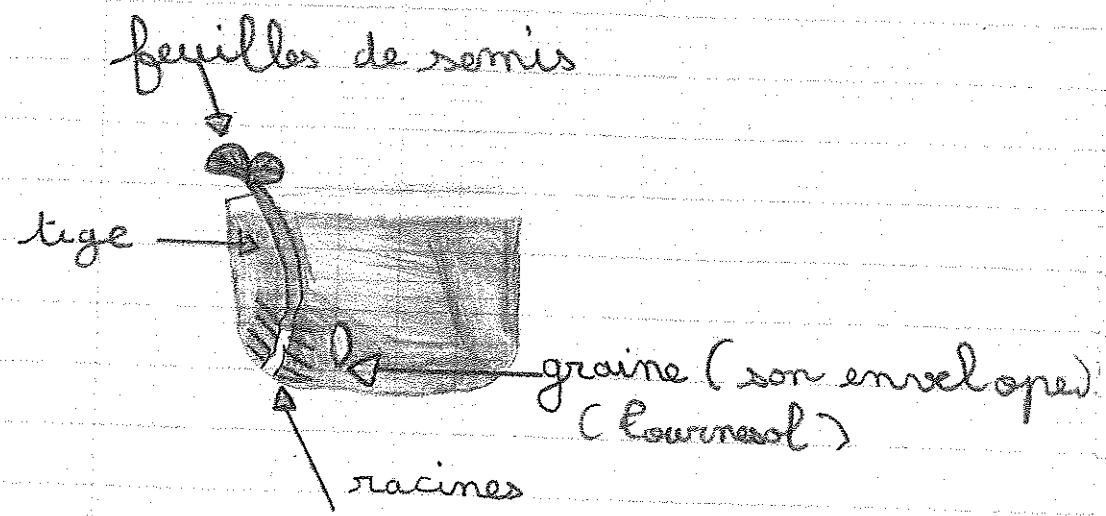 feuilles de semis
tige
graine (son envelope)
(tournesol)
racines